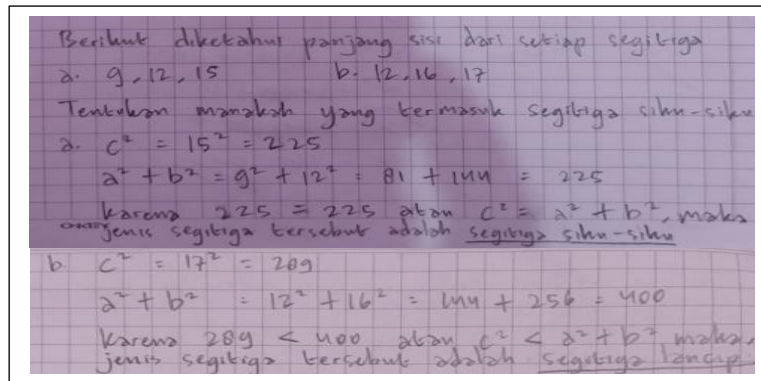 Berikut diketahui panjang sisi dari setiap segitiga
a. 9, 12, 15 b. 12, 16, 17
Tentukan manakah yang termasuk segitiga siku-siku
a. c² = 15² = 225
a² + b² = 9² + 12² = 81 + 144 = 225
karena 225 = 225 atau c² = a² + b², maka
jenis segitiga tersebut adalah segitiga siku-siku
b. c² = 17² = 289
a² + b² = 12² + 16² = 144 + 256 = 400
karena 289 < 400 atau c² < a² + b² maka,
jenis segitiga tersebut adalah segitiga lancip